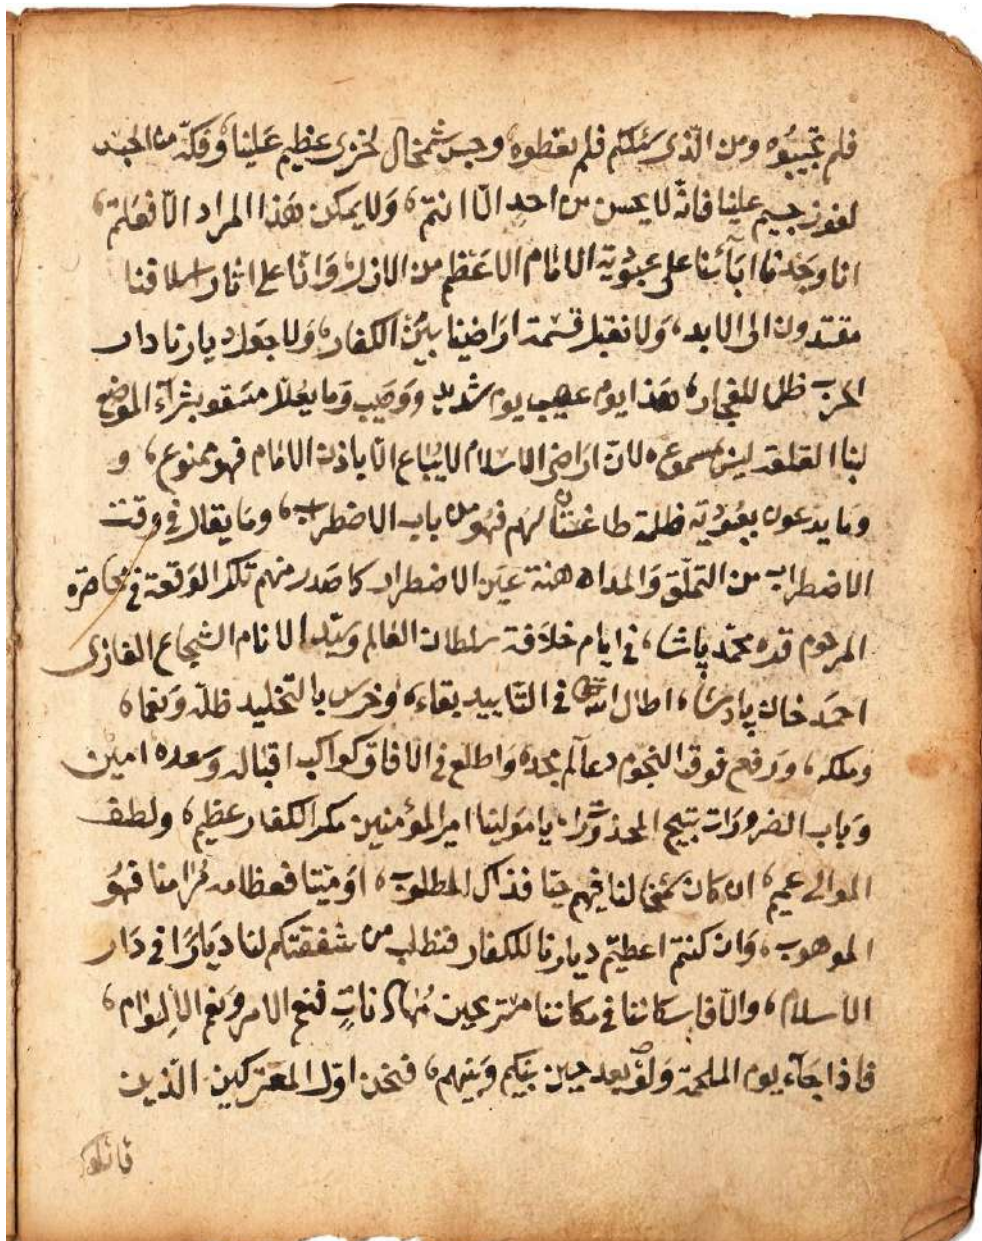 فلم تجيبوه ومن الّذى سئلكم فلم تعطوه وحبس شمخال لخزى عظيم علينا وفكّه من الحبس
لفوز جسيم علينا فانّه لا يحسن من احد الّا انتم، ولا يمكن هذا المراد الّا فعلتم،
انا وجدنا ابآئنا على عبوديّة الامام الاعظم من الازل وانّا على اثار اسلافنا
مقتدون الى الابد، ولا نقبل قسمة اراضينا بين الكفار، ولا جعل ديارنا دار
الحرب ظلما للفجار، هذا يوم عصيب يوم شديد ووصيب وما يعلّل مسقو بشرآء الموضع
لبنا القلعة ليس بمسموع، لانّ اراضى الاسلام لا يباع الّا باذن الامام فهو ممنوع، و
وما يدعون بعبوديّة ظلمة طاغستان لهم فهو من باب الاضطراب، وما يقال في وقت
الاضطراب من التملّق والمداهنة عين الاضطرار كما صدر منهم تلك الوقعة في محاصرة
المرحوم قره محمد پاشا، في ايام خلافة سلطان العالم وسيّد الانام الشجاع الغازى
احمد خان پادشاه اطال الله في التابيد بقاءه وحرس بالتخليد ظلّه ونعماه
وملكه، ورفع فوق النجوم دعآئم مجده واطلع في الافاق كواكب اقباله وسعده امين
وباب الضرورات تبيح المحذورات، يا مولينا امير المؤمنين مكر الكفار عظيم، ولطف
الموالى عميم، ان كان شمخالنا فيهم حيّا فذاك المطلوب، او ميّتا فعظامه مرامنا فهو
الموهوب، وان كنتم اعطيتم ديارنا للكفار فنطلب من شفقتكم لنا ديارا في دار
الاسلام، والّا فاسكاننا في مكاننا مستريحين فنعم الامر ونعم الالزام،
فاذا جآء يوم الملحمة ولو بعد حين بينكم وبينهم، فنحن اوّل المعتركين الّذين
قاتلوا